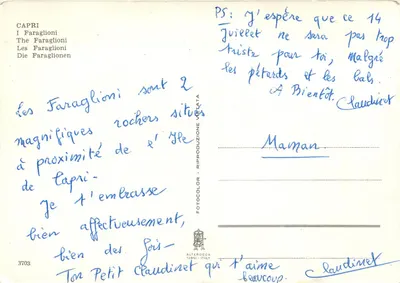 CAPRI
I Faraglioni
The Faraglioni
Les Faraglioni
Die Faraglionen
Les Faraglioni sont 2
magnifiques rochers situés
à proximité de l'Ile
de Capri-
Je t'embrasse
bien affectueusement,
bien des fois-
Ton Petit Claudinet qui t'aime
beaucoup.
Claudinet
PS: J'espère que ce 14
Juillet ne sera pas trop
triste pour toi, malgré
les pétards et les bals.
A Bientôt.
Claudinet
Maman.
FOTOCOLOR - RIPRODUZIONE VIETATA
3703